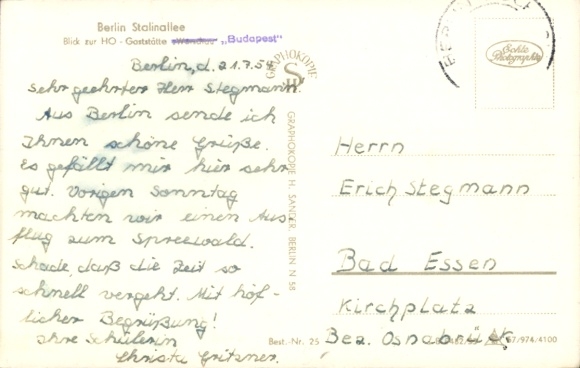 Berlin Stalinallee
Blick zur HO - Gaststätte „Budapest"
Berlin, d. 21.7.59
Sehr geehrter Herr Stegmann.
Aus Berlin sende ich
Ihnen schöne Grüße.
Es gefällt mir hier sehr
gut. Vorigen Sonntag
machten wir einen Aus-
flug zum Spreewald.
Schade, daß die Zeit so
schnell vergeht. Mit höf-
licher Begrüßung!
Ihre Schülerin
Christa Gritzner.
GRAPHOKOPIE
GRAPHOKOPIE H. SANDER, BERLIN N 58
Echte
Photographie
Herrn
Erich Stegmann
Bad Essen
Kirchplatz
Bez. Osnabrück
Best.-Nr. 25
67/974/4100